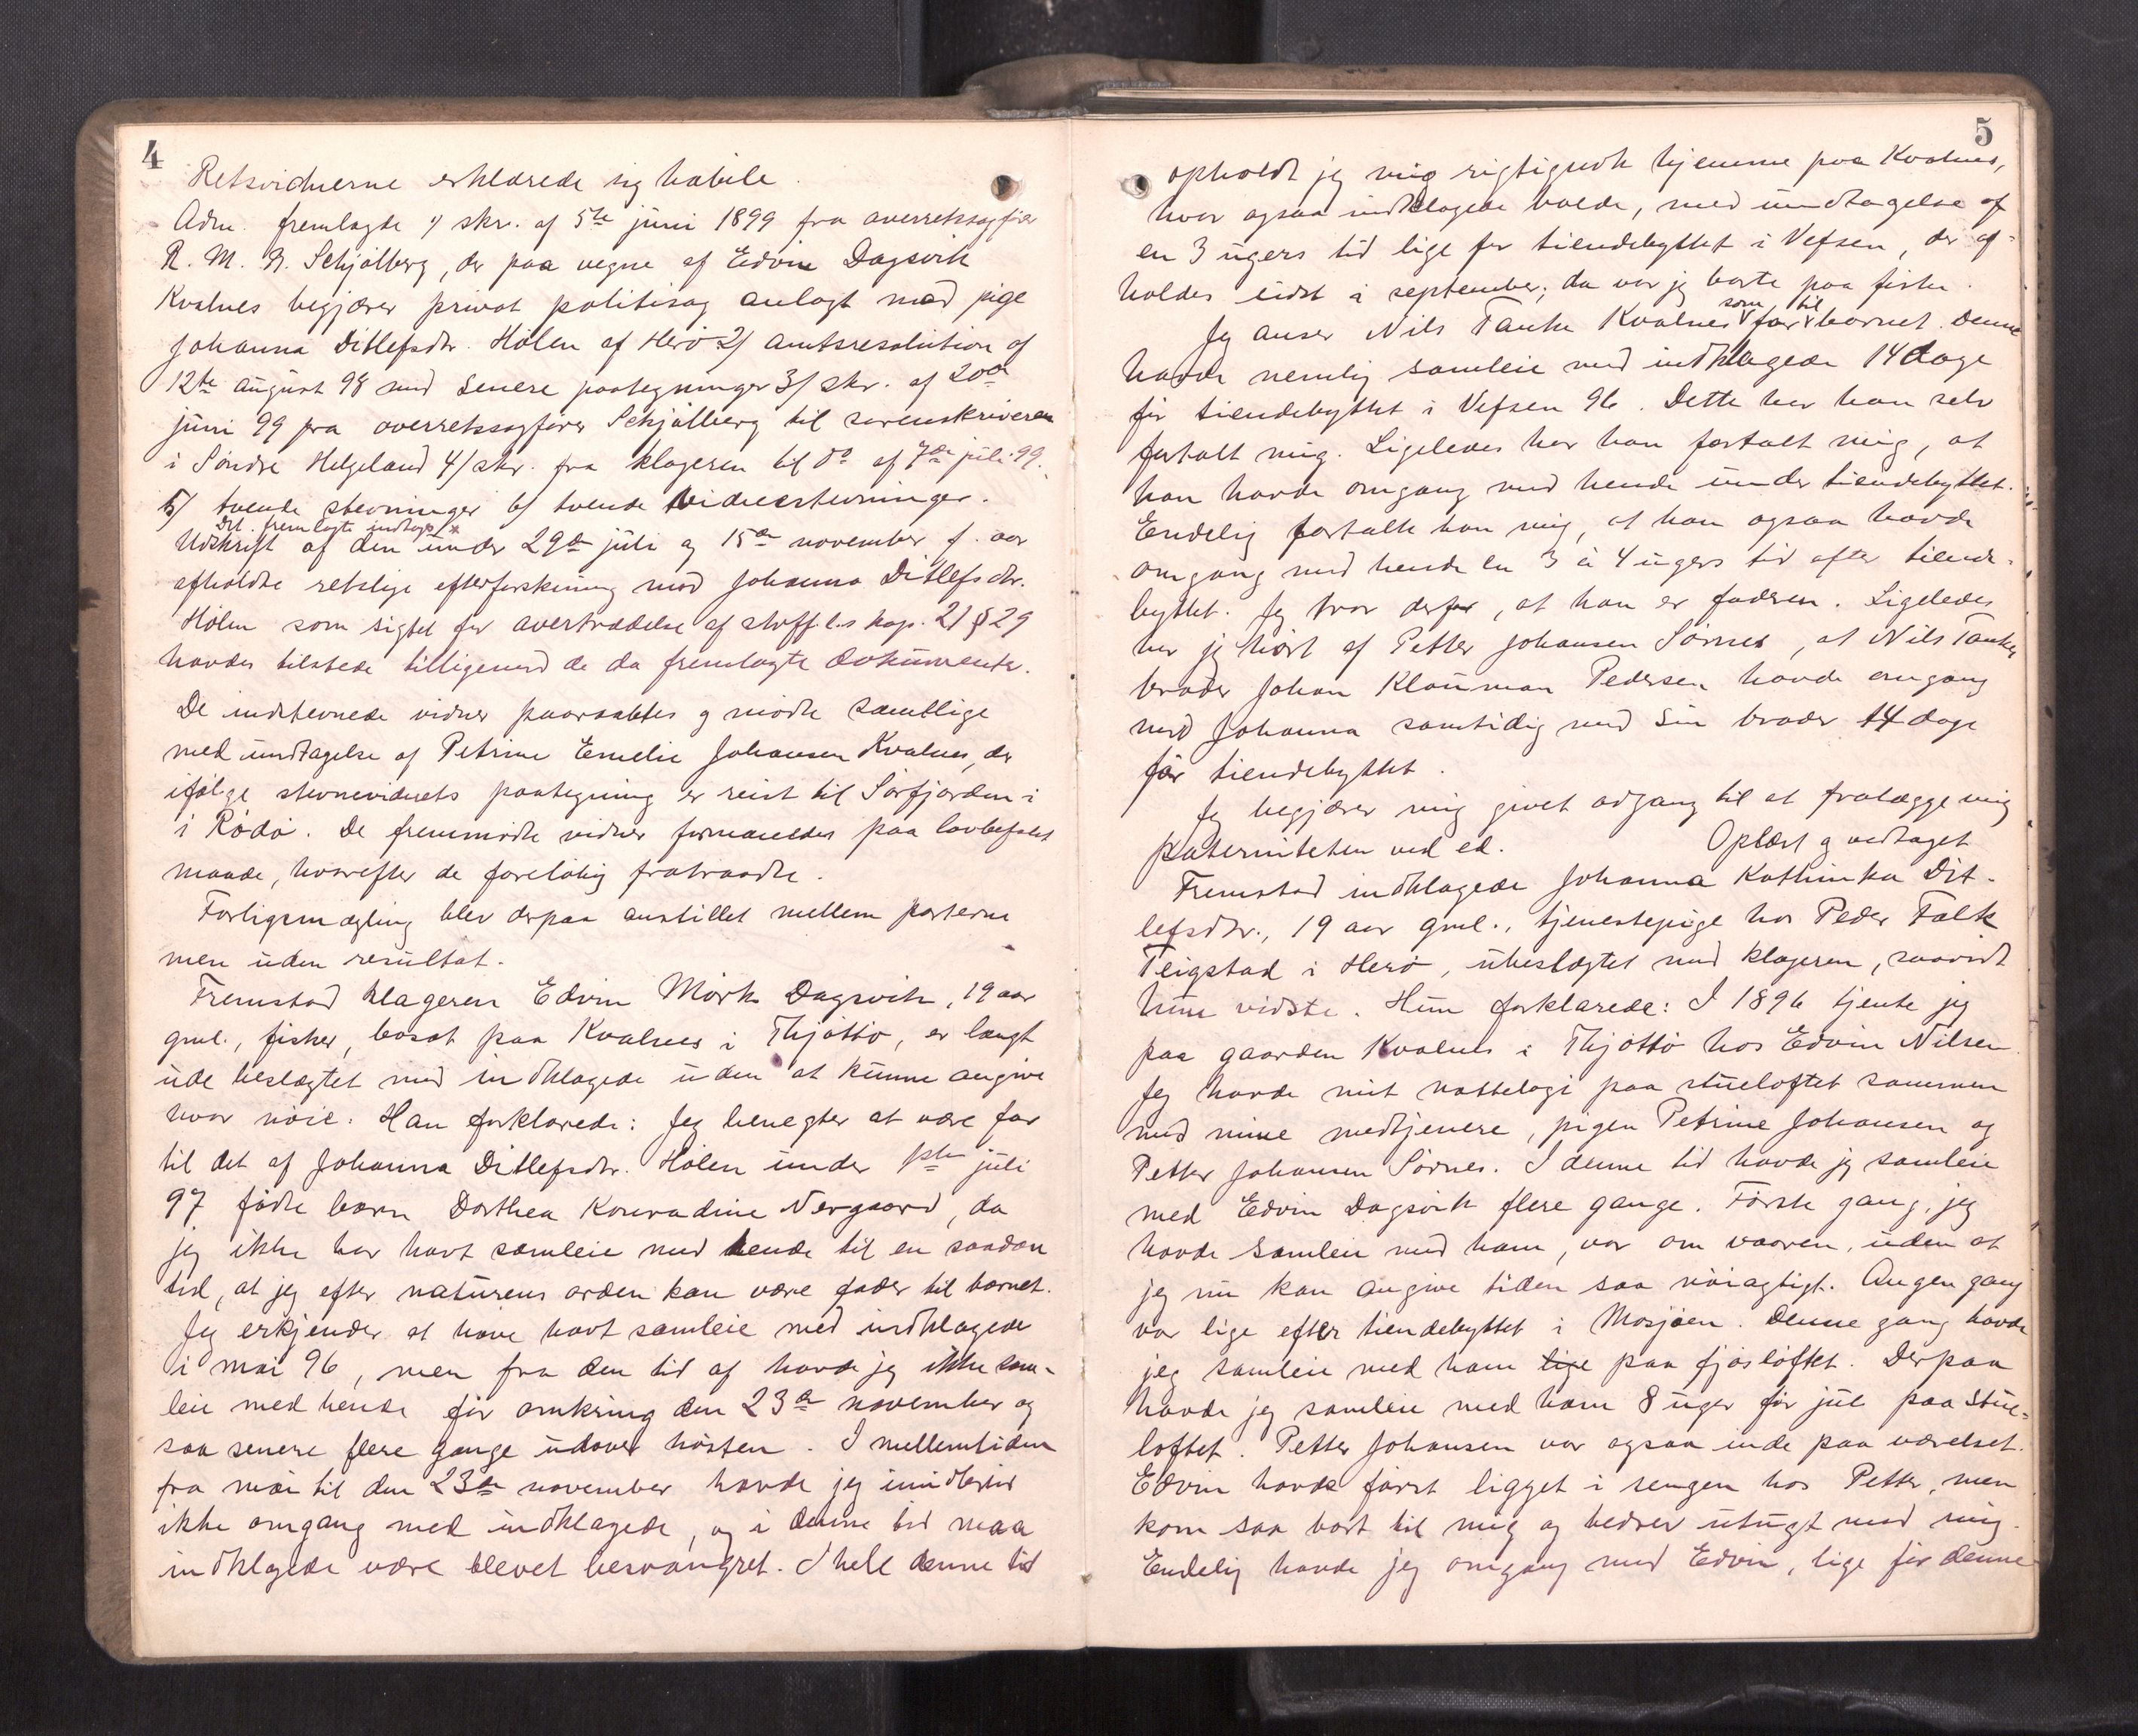 4
Retsvidnerne erklærede sig habile.
Adm. fremlagte 1/ skr. af 5te juni 1899 fra overretssagfører
R. M. B. Schjølberg, der paa vegne af Edvin Dagsvik
Kvalnes begjærer privat politisag anlagt mod pige
Johanna Ditlefsdtr. Hölen af Herö 2/ amtsresolution af
12te august 98 med senere paategninger 3/ skr. af 20de
juni 99 fra overretssagfører Schjølberg til sorenskriveren
i Söndre Helgeland 4/ skr. fra klageren til do af 7de juli 99.
5/ tvende stevninger 6/ tvende vidnestevninger.
Det fremlagte indtages
Udskrift af den under 29de juli og 15de november f. aar
afholdte retslige efterforskning mod Johanna Ditlefsdtr.
Hölen som sigtet for overtrædelse af straff.l.s kap. 21 § 29
havdes tilstede tilligemed de da fremlagte dokumenter.
De indstevnede vidner paaraabtes og mödte samtlige
med undtagelse af Petrine Emelie Johansen Kvalnes, der
ifølge stevnevidnets paategning er reist til Sörfjorden i
i Rödö. De fremmödte vidner formanedes paa lovbefalet
maade, hvorefter de foreløbig fratraadte.
Forligsmægling blev derpaa anstillet mellem parterne
men uden resultat.
Fremstod klageren Edvin Mörk Dagsvik, 19 aar
gml., fisker, bosat paa Kvalnes i Thjöttö, er langt
ude beslægtet med indklagede uden at kunne angive
hvor nöie. Han forklarede: Jeg benegter at være far
til det af Johanna Ditlefsdtr. Hölen under 1ste juli
97 födte barn Dorthea Konradine Nergaard, da
jeg ikke har havt samleie med hende til en saadan
tid, at jeg efter naturens orden kan være fader til barnet.
Jeg erkjender at have havt samleie med indklagede
i mai 96, men fra den tid af havde jeg ikke sam-
leie med hende før omkring den 23de november og
saa senere flere gange udover hösten. I mellemtiden
fra mai til den 23de november havde jeg imidlertid
ikke omgang med indklagede, og i denne tid maa
indklagede være blevet besvangret. I hele denne tid
5
opholdt jeg mig rigtignok hjemme paa Kvalnes,
hvor ogsaa indklagede holde, med undtagelse af
en 3 ugers tid lige før tiendebyttet i Vefsen, der af-
holdes sidst i september; da var jeg borte paa fiske.
Jeg anser Nils Tanke Kvalnes som far til barnet. Denne
havde nemlig samleie med indklagede 14 dage
før tiendebyttet i Vefsen 96. Dette har han selv
fortalt mig. Ligeledes har han fortalt mig, at
han havde omgang med hende under tiendebyttet.
Endelig fortalte han mig, at han ogsaa havde
omgang med hende en 3 à 4 ugers tid efter tiende-
byttet. Jeg tror derfor, at han er faderen. Ligeledes
har jeg hørt af Petter Johansen Sörnes, at Nils Tankes
broder Johan Klauman Pedersen havde omgang
med Johanna samtidig med sin broder 14 dage
för tiendebyttet.
Jeg begjærer mig givet adgang til at fralægge mig
paterniteten ved ed. Oplæst og vedtaget
Fremstod indklagede Johanna Kathinka Dit-
lefsdtr., 19 aar gml., tjenestepige hos Peder Falk
Teigstad i Herö, ubeslægtet med klageren, saavidt
hun vidste. Hun forklarede: I 1896 tjente jeg
paa gaarden Kvalnes i Thjöttö hos Edvin Nilsen.
Jeg havde mit nattelogi paa stueloftet sammen
med mine medtjenere, pigen Petrine Johansen og
Petter Johansen Sörnes. I denne tid havde jeg samleie
med Edvin Dagsvik flere gange. Förste gang, jeg
havde samleie med ham, var om vaaren, uden at
jeg nu kan angive tiden saa nöiagtigt. Angen gang
var lige efter tiendebyttet i Mosjøen. Denne gang havde
jeg samleie med ham lige paa fjösløftet. Derpaa
havde jeg samleie med ham 8 uger før jul paa stue-
loftet. Petter Johansen var ogsaa inde paa værelset.
Edvin havde først ligget i sengen hos Petter, men
kom saa bort til mig og bedrev utugt med mig.
Endelig havde jeg omgang med Edvin, lige før denne